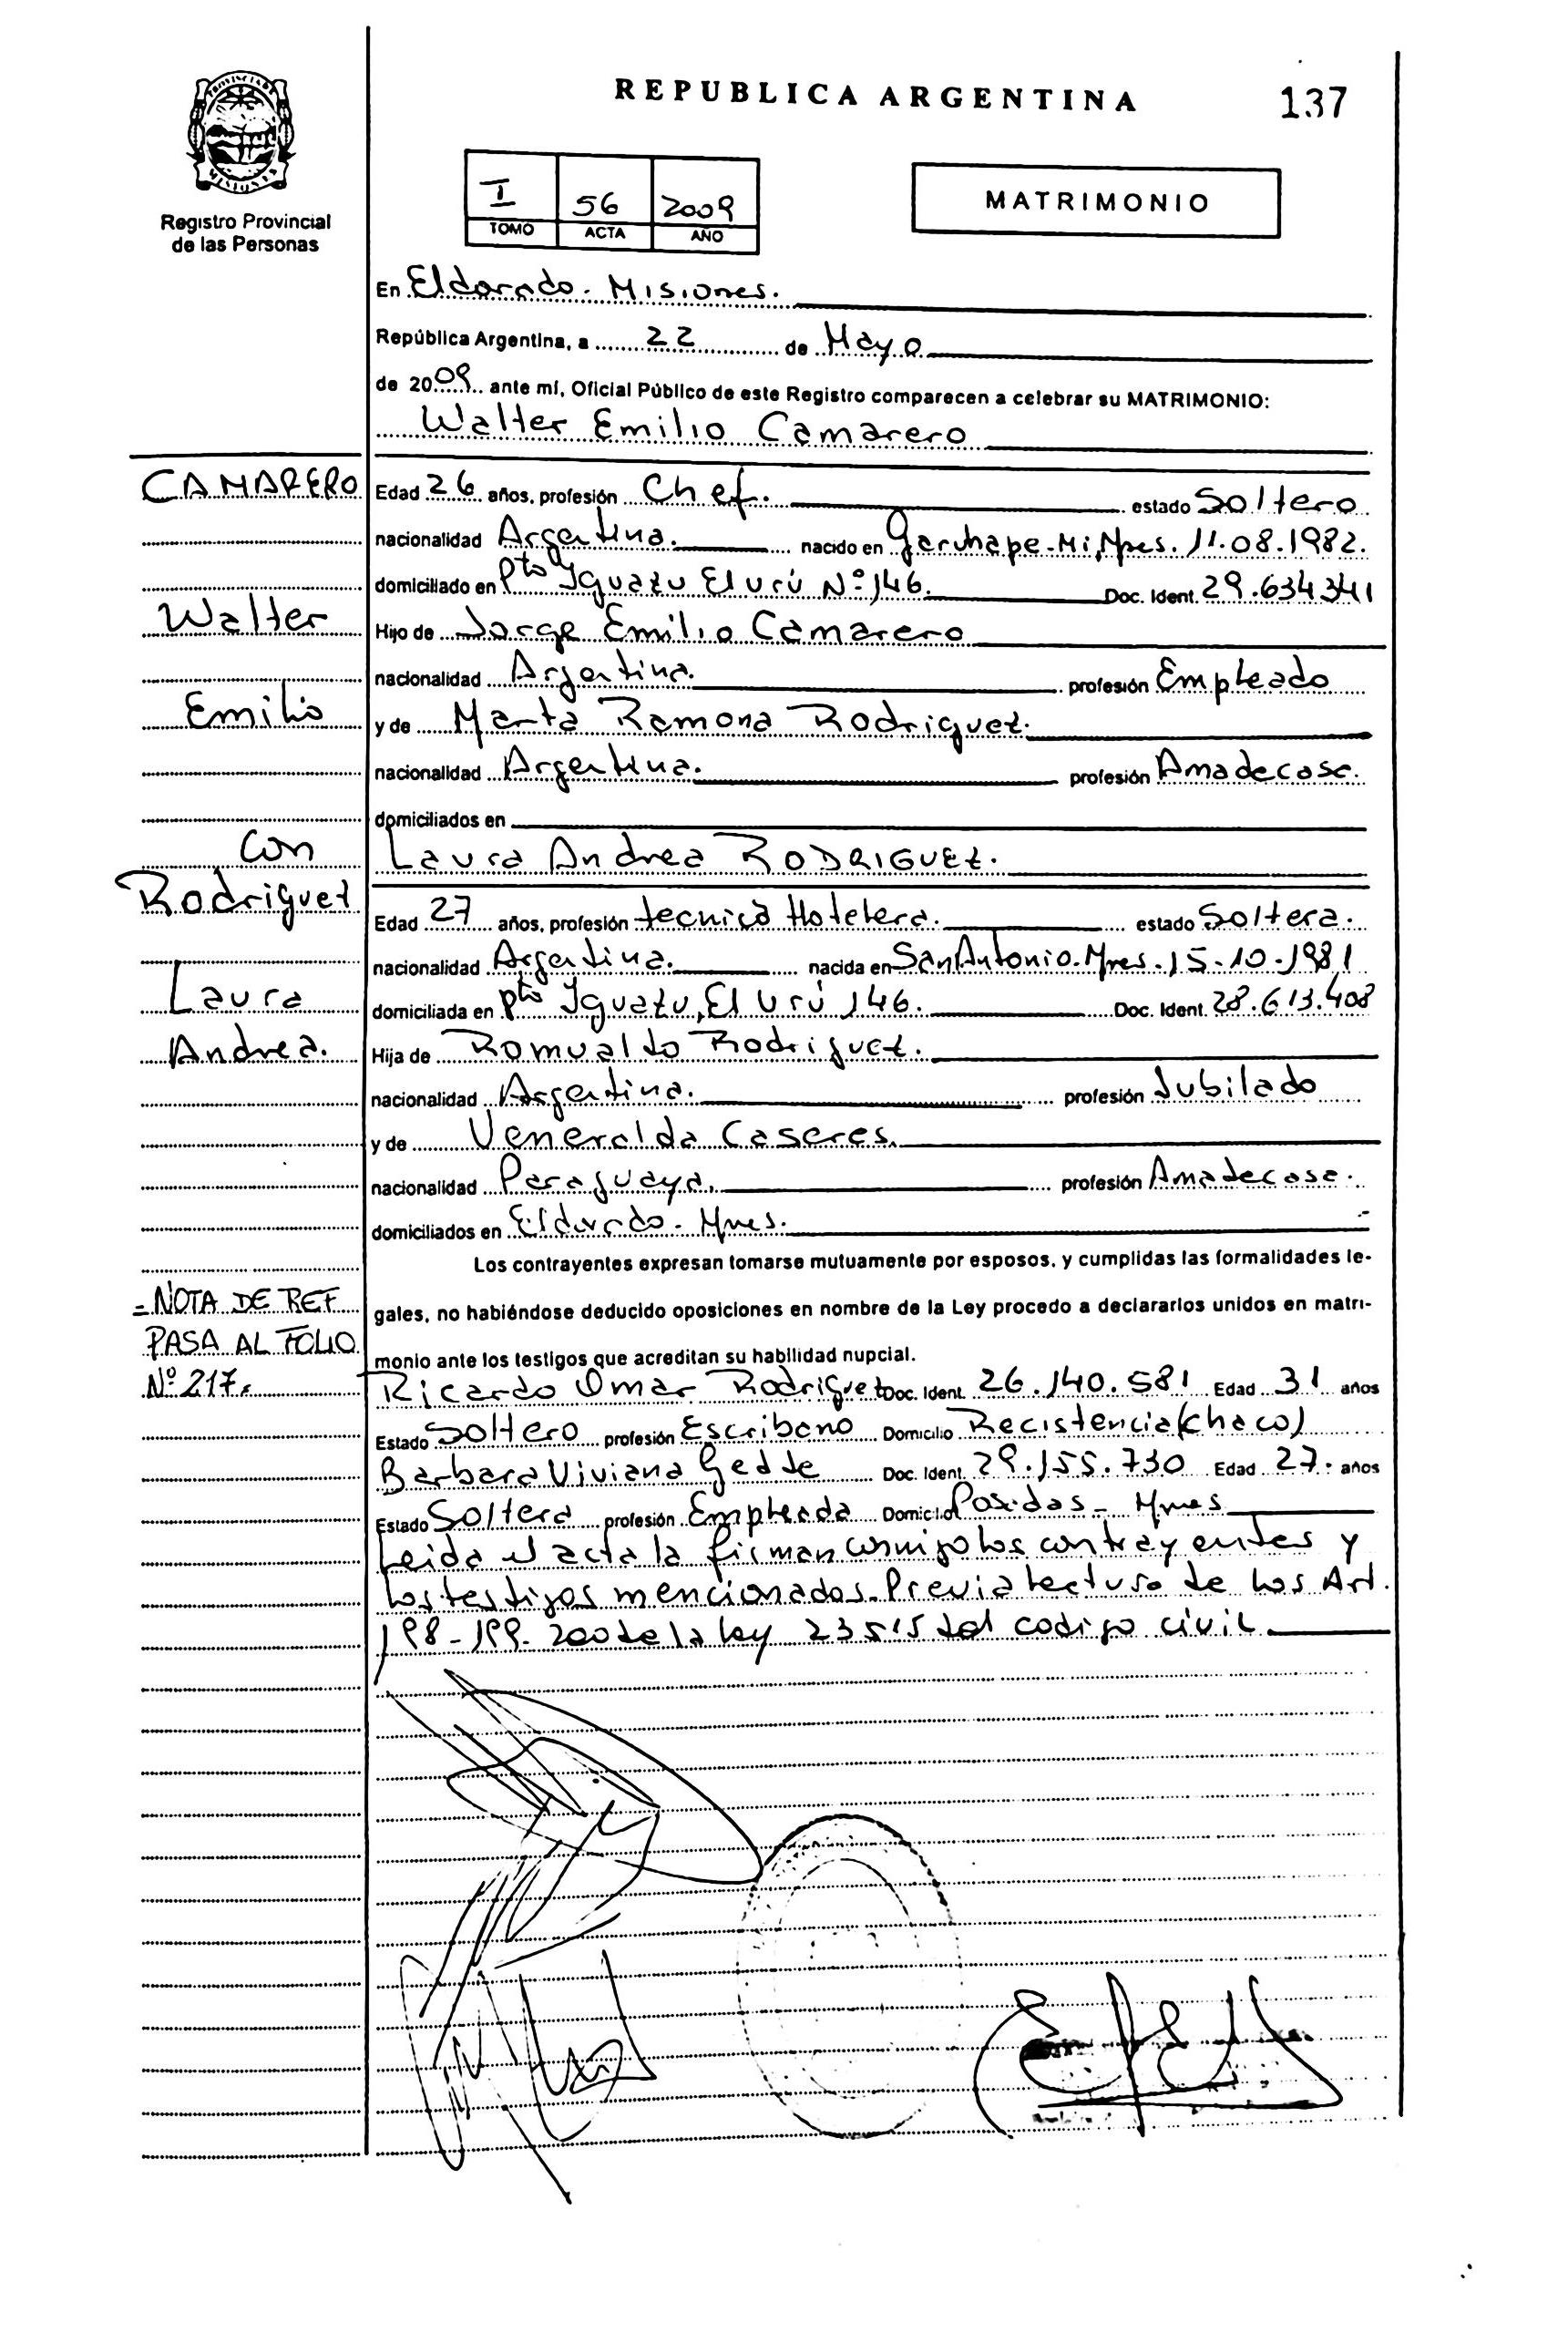 REPUBLICA ARGENTINA
137
PROVINCIA DE MISIONES
Registro Provincial
de las Personas
I 56 2009
TOMO ACTA AÑO
MATRIMONIO
En Eldorado. Misiones.
República Argentina, a 22 de Mayo
de 2009 ante mí, Oficial Público de este Registro comparecen a celebrar su MATRIMONIO:
Walter Emilio Camarero
CAMARERO
Walter
Emilio
con
Rodriguez
Laura
Andrea.
Edad 26 años, profesión Chef. estado Soltero
nacionalidad Argentina. nacido en Garuhape-Mi, Mnes. 11.08.1982.
domiciliado en Pto Iguazu El Urú Nº 146. Doc. Ident. 29.634341
Hijo de Jorge Emilio Camarero
nacionalidad Argentina. profesión Empleado
y de Marta Ramona Rodriguez.
nacionalidad Argentina. profesión Amadecasa.
domiciliados en
Laura Andrea RODRIGUEZ.
Edad 27 años, profesión tecnica Hotelera. estado Soltera.
nacionalidad Argentina. nacida en San Antonio. Mnes. 15-10-1981
domiciliada en Pto Iguazu, El Urú 146. Doc. Ident. 28.613.408
Hija de Romualdo Rodriguez.
nacionalidad Argentina. profesión Jubilado
y de Veneralda Caseres.
nacionalidad Paraguaya. profesión Amadecasa.
domiciliados en Eldorado. Mnes.
Los contrayentes expresan tomarse mutuamente por esposos, y cumplidas las formalidades le-
gales, no habiéndose deducido oposiciones en nombre de la Ley procedo a declararlos unidos en matri-
monio ante los testigos que acreditan su habilidad nupcial.
=NOTA DE REF
PASA AL FOLIO
Nº 217.
Ricardo Omar Rodriguez Doc. Ident. 26.140.581 Edad 31 años
Estado Soltero profesión Escribano Domicilio Recistencia (chaco)
Barbara Viviana Gedde Doc. Ident. 29.155.730 Edad 27. años
Estado Soltera profesión Empleada Domicilio Posidas - Mnes
Leida el acta la firman conmigo los contrayentes y
los testigos mencionados. Previa lectura de los Art.
198-199-200 de la ley 23515 del codigo civil